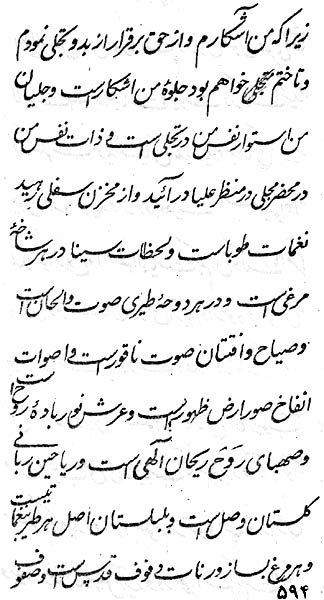 زیرا که من آشکارم و از حق برقرار از بدو تجلی نمودم
و تا ختم متجلی خواهم بود جلوهٔ من اشکار است و جلیان
من استوار نفس من در تجلی است و ذات نفس من
در محضر مجلی در منظر علیا در آئید و از مخزن سفلی رهید
نغمات طوبا است و لحظات سینا در هر شاخهٔ
مرغی است و در هر دوحهٔ طیری صوت و الحان است
و صیاح و افتنان صوت ناقور است و اصوات
انفاخ صور ارض ظهور است و عرش نور بادهٔ روح است
و صهبای رَوح ریحان الهی است و ریاحین ربانی
گلستان وصل است و بلبلستان اصل هر طیر بنغماتیست
و هر مرغ بساز و رنات دفوف قدس است و صفوف
۵۹۴